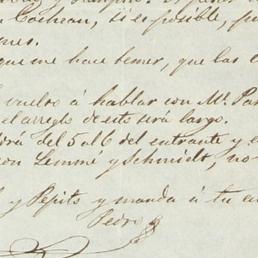 n Cocheau, si es posible, pu
ones.
que me hace temer, que las c
vuelto á hablar con Mr. Par
el arreglo de esto será largo.
drá del 5 al 6 del entrante y e
con Lemmé y Schmidt, no
y Pepito y manda á tu a
Pedro